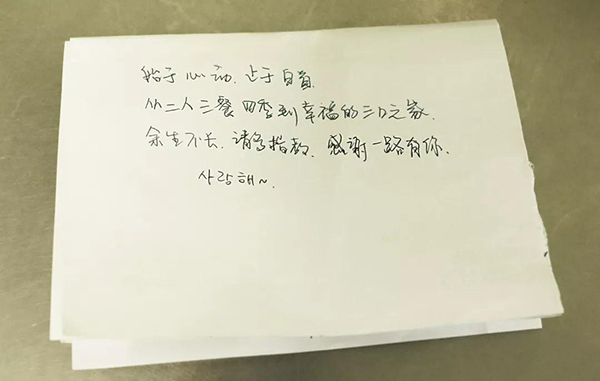 始于心动,止于白首.
从二人三餐四季到幸福的三口之家.
余生不长,请多指教,感谢一路有你.
사랑해~.